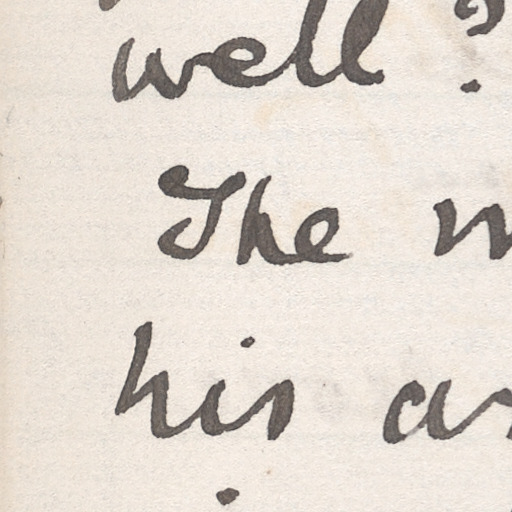 well ?
The
his